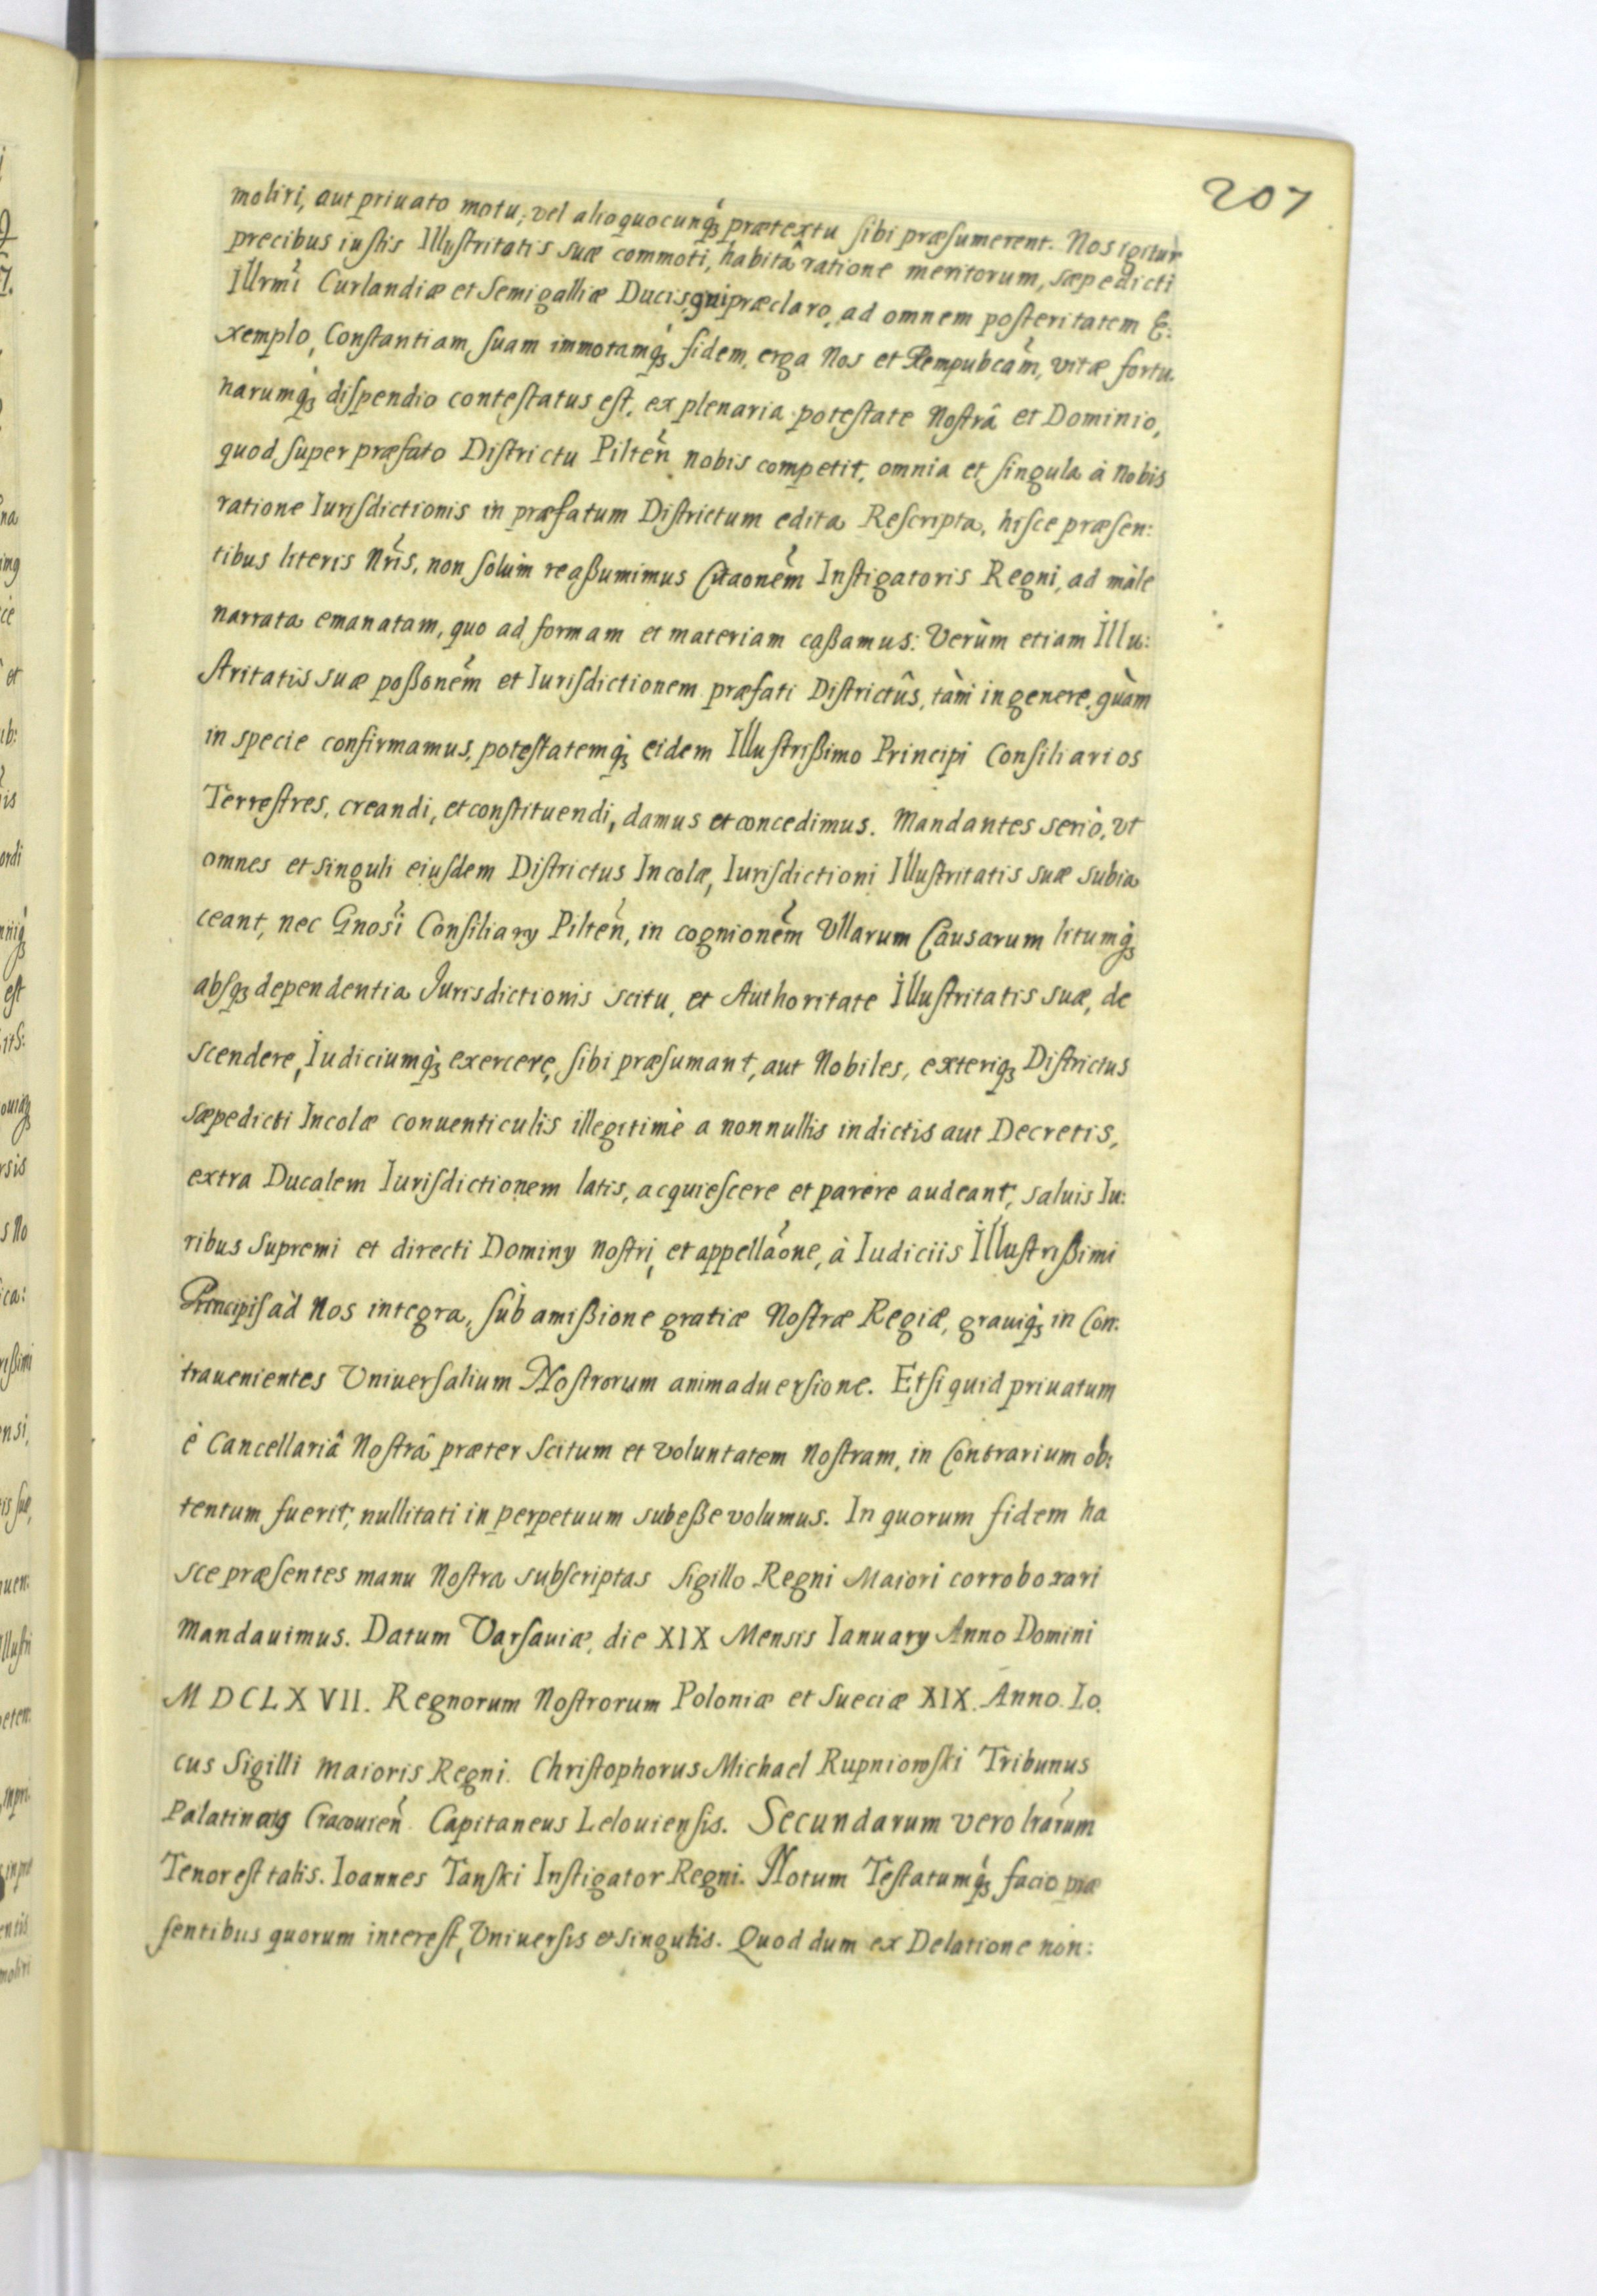 207
moliri, aut priuato motu, vel alio quocunq́ꝫ prætextu sibi præsumerent. Nos igitur
precibus iustis Illustritatis suæ commoti, habitâ ratione meritorum, sæpedicti
Illrm̃i Curlandiæ et Semigalliæ Ducis, qui præclaro, ad omnem posteritatem E:
xemplo, Constantiam suam immotamq́ꝫ fidem, erga Nos et Rempubcam̃, vitæ fortu.
narumq́ꝫ dispendio contestatus est, ex plenaria potestate Nostrâ et Dominio,
quod super præfato Districtu Pilteñ nobis competit, omnia et singula à Nobis
ratione Iurisdictionis in præfatum Districtum edita Rescripta, hisce præsen:
tibus literis Nr̃is, non solùm reaßumimus Citaonem̃ Instigatoris Regni, ad màle
narrata emanatam, quo ad formam et materiam caßamus: Verùm etiam Illu:
stritatis suæ poßonem̃ et Iurisdictionem præfati Districtûs, tàm in genere, quàm
in specie confirmamus, potestatemq́ꝫ eidem Illustrißimo Principi Consiliarios
Terrestres, creandi, et constituendi, damus et concedimus. Mandantes seriò, vt
omnes et singuli eiusdem Districtus Incolæ, Iurisdictioni Illustritatis suæ subia
ceant, nec Gnosĩ Consiliary Pilteñ, in cognionem̃ Vllarum Causarum litumq́ꝫ
absqꝫ dependentia Jurisdictionis scitu, et Authoritate Illustritatis suæ, de
scendere, Iudiciumq́ꝫ exercere, sibi præsumant, aut Nobiles, exteriqꝫ Districtus
sæpedicti Incolæ conuenticulis illegitimè a nonnullis indictis aut Decretis,
extra Ducalem Iurisdictionem latis, acquiescere et parere audeant, saluis Iu:
ribus Supremi et directi Dominy nostri, et appellãone, à Iudiciis Illustrißimi
Principis ad Nos integra, sub amißione gratiæ Nostræ Regiæ, grauiq́ꝫ in Con:
trauenientes Vniuersalium Nostrorum animaduersione. Et si quid priuatum
è Cancellariâ Nostrâ præter Scitum et voluntatem nostram, in Contrarium ob:
tentum fuerit, nullitati in perpetuum subeße volumus. In quorum fidem ha
sce præsentes manu Nostra subscriptas Sigillo Regni Maiori corroborari
mandauimus. Datum Varsauiæ, die XIX Mensis Ianuary Anno Domini
MDCLXVII. Regnorum Nostrorum Poloniæ et Sueciæ XIX. Anno. Lo.
cus Sigilli maioris Regni. Christophorus Michael Rupniowski Tribunus
Palatinatus Cracouieñ Capitaneus Lelouiensis. Secundarum vero lrarum̃
Tenor est talis. Ioannes Tanski Instigator Regni. Notum Testatumq́ꝫ facio præ
sentibus quorum interest, Vniuersis et singulis. Quod dum ex Delatione non: